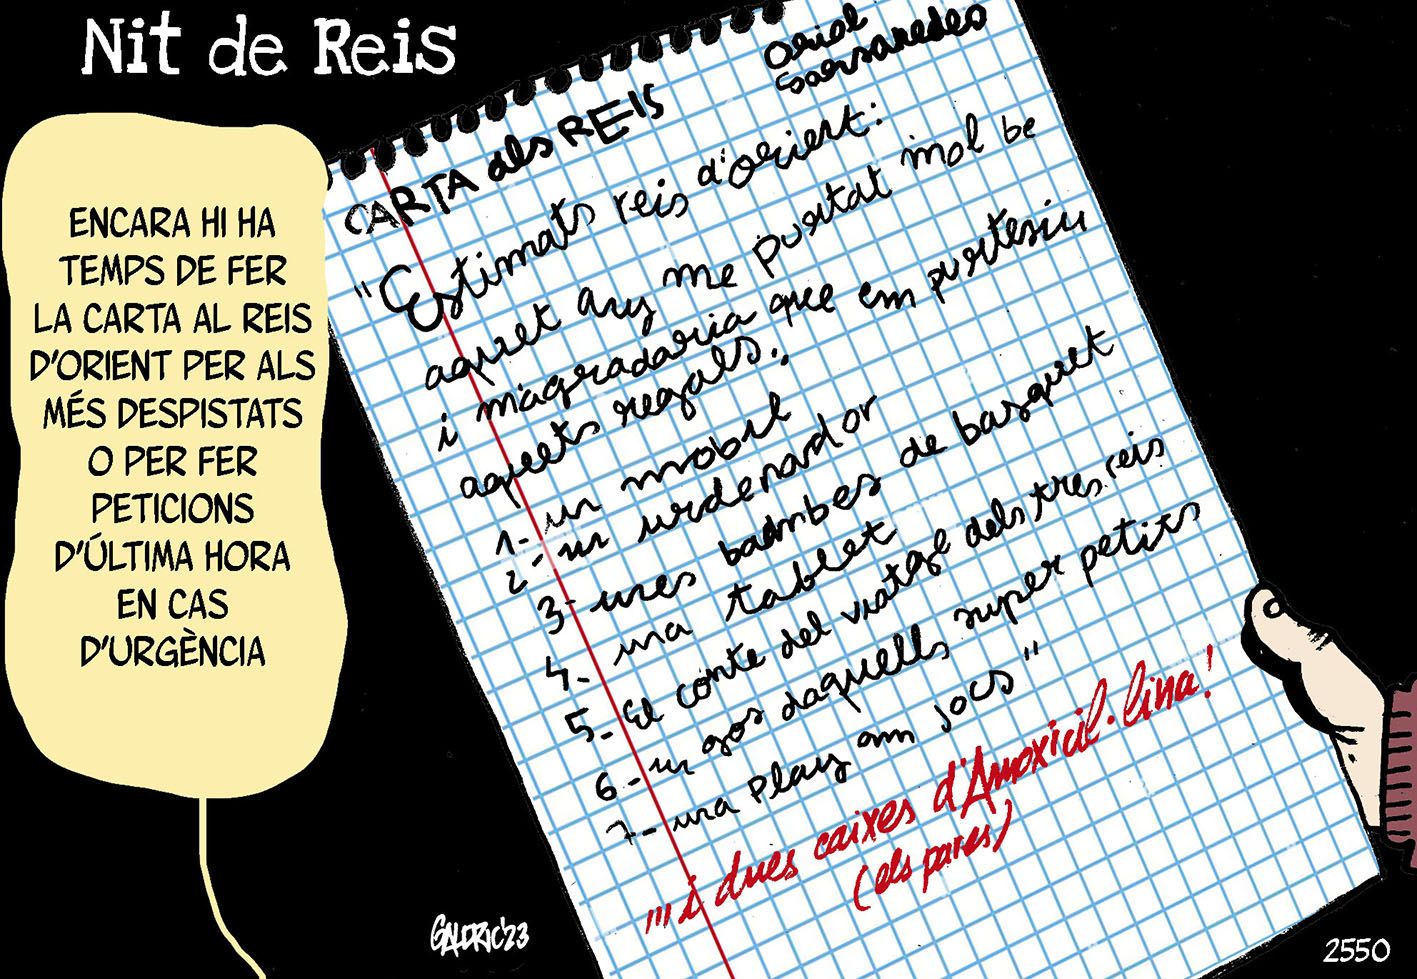 Nit de Reis
ENCARA HI HA
TEMPS DE FER
LA CARTA AL REIS
D'ORIENT PER ALS
MÉS DESPISTATS
O PER FER
PETICIONS
D'ÚLTIMA HORA
EN CAS
D'URGÈNCIA
Oriol
Sarsanedes
CARTA als REIS
"Estimats reis d'Orient:
aquet any me purtat mol be
i magradaria que em purtesiu
aquets regals.:
1- un mobil
2- un urdenador
3- unes bambes de basquet
4- una tablet
5- El conte del viatge dels tres reis
6- un gos daquells super petits
7- una play am jocs"
"'i dues caixes d'Amoxicil·lina!
(els pares)
GALDRIC'23
2550